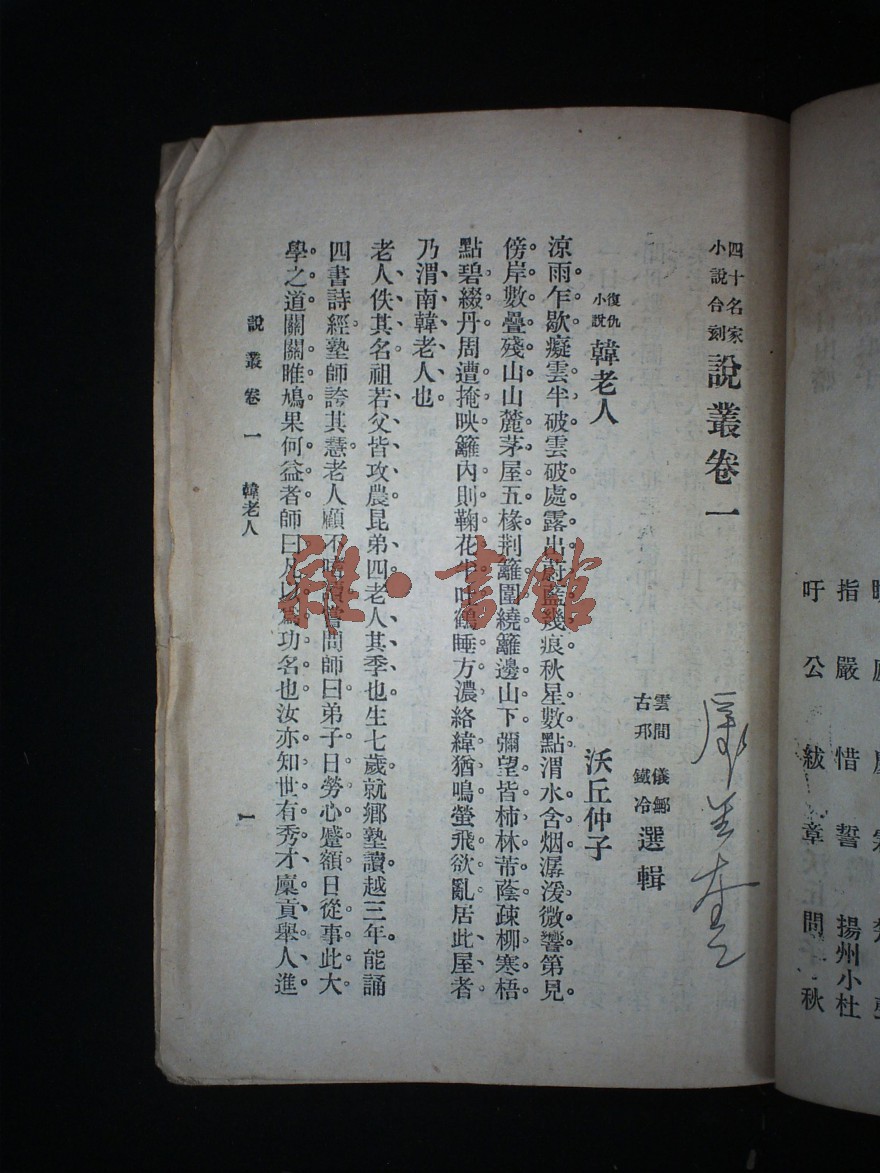 四十名家
小說合刻
說叢卷一
雲間儀鄦
古邗鐵冷
選輯
復仇
小說
韓老人
沃丘仲子
涼雨乍歇。癡雲半破。雲破處露出蔚藍幾痕。秋星數點。渭水含烟。潺湲微響。第見
傍岸數疊殘山。山麓茅屋五椽。荆籬圍繞。籬邊山下。彌望皆柿林芾蔭。疎柳寒梧。
點碧綴丹。周遭掩映。籬內則鞠花 吐。鶴睡方濃。絡緯猶鳴。螢飛欲亂。居此屋者、
乃渭南韓老人也
老人佚其名、祖若父皆攻農、昆弟四、老人其季也、生七歲就鄉塾讀、越三年能誦
四書詩經。塾師誇其慧。老人顧不 讀。嘗問師曰。弟子日勞心蹙額。日從事此大
學之道。關關睢鳩。果何益者。師曰。凡以爲功名也。汝亦知世有秀才廩貢舉人進
說叢卷一 韓老人
一
雜·書館
指嚴 惜誓 揚州小杜
吁公 紱章 問秋